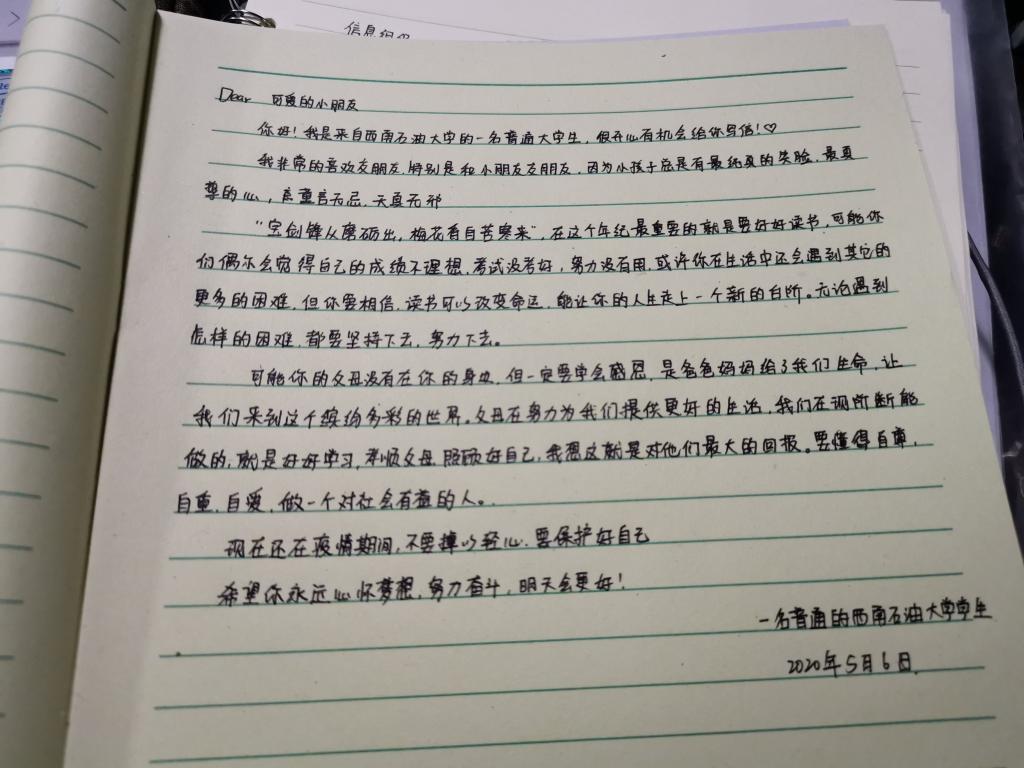 信息组
Dear 可爱的小朋友
你好！我是来自西南石油大学的一名普通大学生，很开心有机会给你写信！♡
我非常的喜欢交朋友，特别是和小朋友交朋友，因为小孩子总是有最纯真的笑脸，最真
挚的心，童言无忌，天真无邪
“宝剑锋从磨砺出，梅花香自苦寒来”，在这个年纪最重要的就是要好好读书，可能你
们偶尔会觉得自己的成绩不理想，考试没考好，努力没有用，或许你在生活中还会遇到其它的
更多的困难，但你要相信，读书可以改变命运，能让你的人生走上一个新的台阶。无论遇到
怎样的困难，都要坚持下去，努力下去。
可能你的父母没有在你的身边，但一定要学会感恩，是爸爸妈妈给了我们生命，让
我们来到这个缤纷多彩的世界。父母在努力为我们提供更好的生活，我们在现所能
做的，就是好好学习，孝顺父母，照顾好自己，我想这就是对他们最大的回报。要懂得自尊，
自重，自爱，做一个对社会有益的人。
现在还在疫情期间，不要掉以轻心，要保护好自己
希望你永远心怀梦想，努力奋斗，明天会更好！
一名普通的西南石油大学学生
2020年5月6日